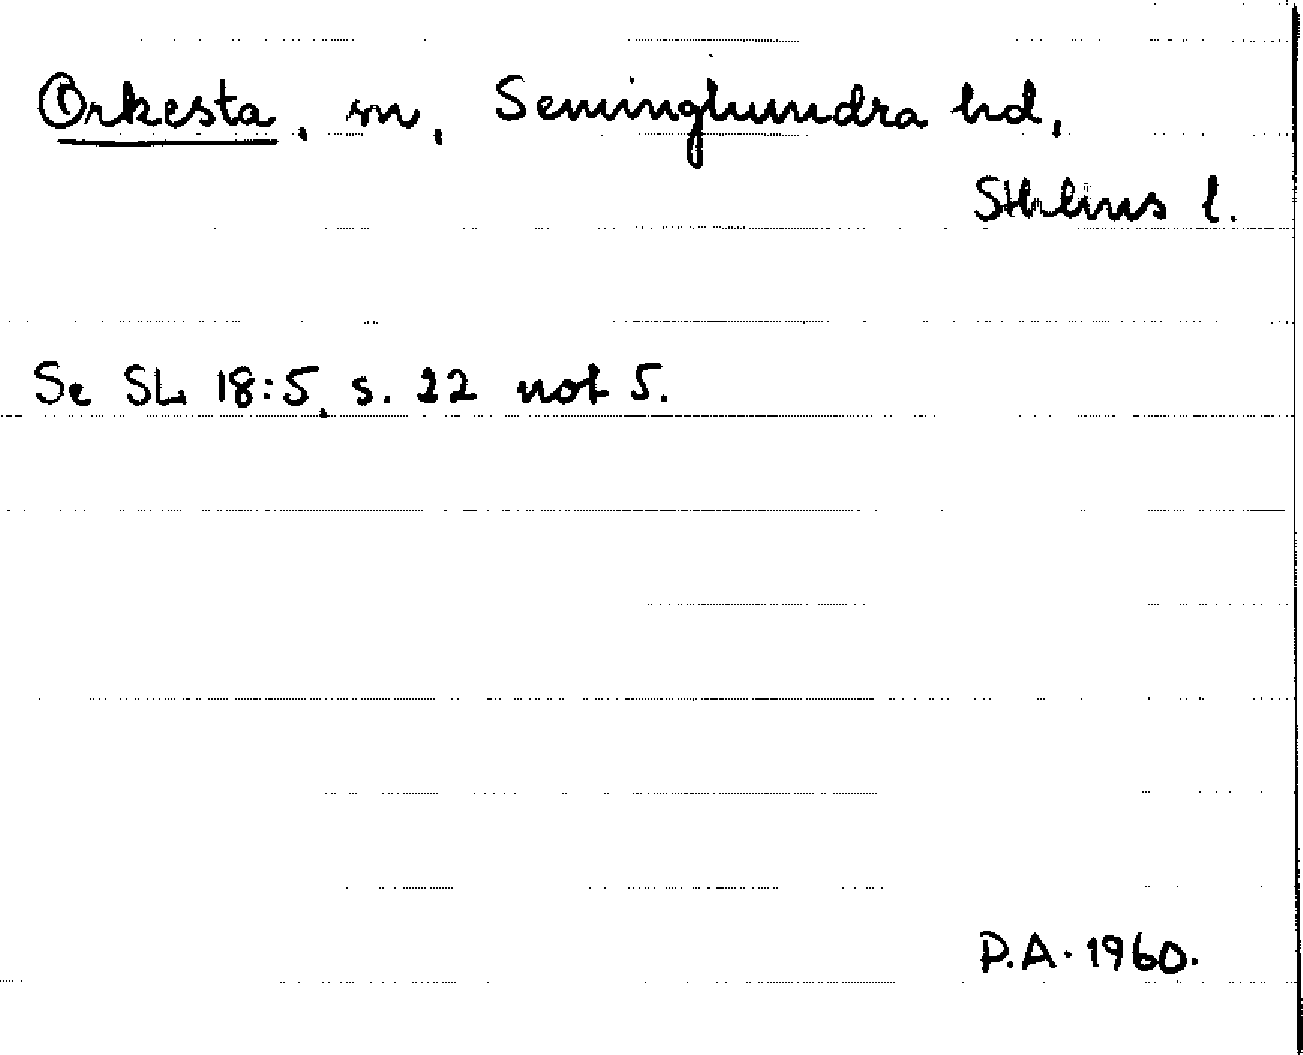 Orkesta, sn, Seminghundra hd,
Sthlms l.
Se SL 18:5, s. 22 not 5.
P.A. 1960.